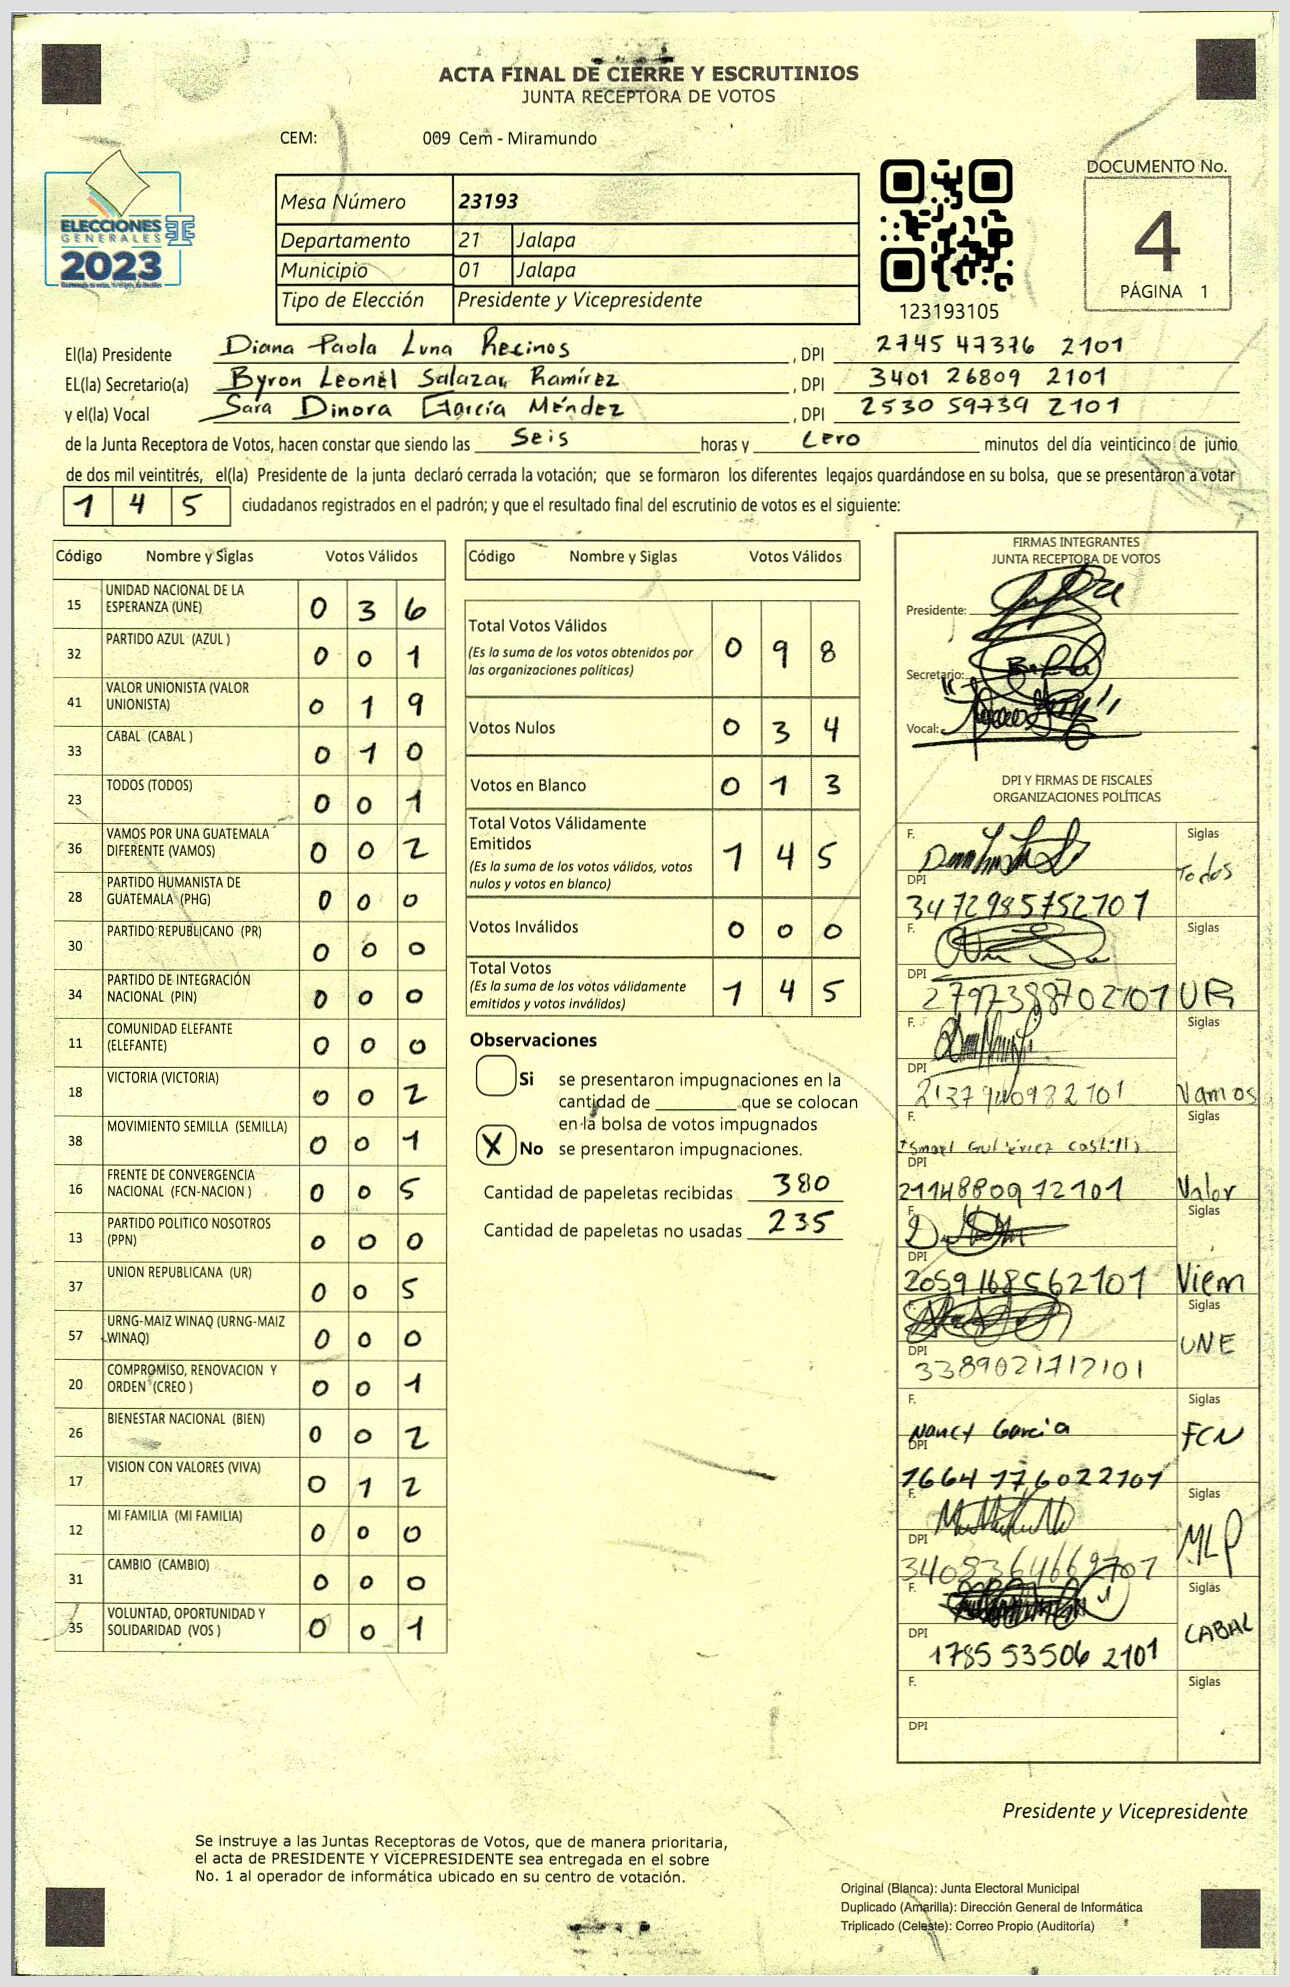 ACTA FINAL DE CIERRE Y ESCRUTINIOS
JUNTA RECEPTORA DE VOTOS
CEM: 009 Cem - Miramundo
DOCUMENTO No.
4
PÁGINA 1
ELECCIONES
GENERALES
2023
Mesa Número 23193
Departamento 21 Jalapa
Municipio 01 Jalapa
Tipo de Elección Presidente y Vicepresidente
123193105
El(la) Presidente Diana Paola Luna Recinos , DPI 2745 47376 2101
EL(la) Secretario(a) Byron Leonel Salazar Ramírez , DPI 3401 26809 2101
y el(la) Vocal Sara Dinora García Méndez , DPI 2530 59739 2101
de la Junta Receptora de Votos, hacen constar que siendo las Seis horas y Cero minutos del día veinticinco de junio
de dos mil veintitrés, el(la) Presidente de la junta declaró cerrada la votación; que se formaron los diferentes legajos guardándose en su bolsa, que se presentaron a votar
145 ciudadanos registrados en el padrón; y que el resultado final del escrutinio de votos es el siguiente:
Código Nombre y Siglas Votos Válidos
15 UNIDAD NACIONAL DE LA ESPERANZA (UNE) 0 3 6
32 PARTIDO AZUL (AZUL ) 0 0 1
41 VALOR UNIONISTA (VALOR UNIONISTA) 0 1 9
33 CABAL (CABAL ) 0 1 0
23 TODOS (TODOS) 0 0 1
36 VAMOS POR UNA GUATEMALA DIFERENTE (VAMOS) 0 0 2
28 PARTIDO HUMANISTA DE GUATEMALA (PHG) 0 0 0
30 PARTIDO REPUBLICANO (PR) 0 0 0
34 PARTIDO DE INTEGRACIÓN NACIONAL (PIN) 0 0 0
11 COMUNIDAD ELEFANTE (ELEFANTE) 0 0 0
18 VICTORIA (VICTORIA) 0 0 2
38 MOVIMIENTO SEMILLA (SEMILLA) 0 0 1
16 FRENTE DE CONVERGENCIA NACIONAL (FCN-NACION ) 0 0 5
13 PARTIDO POLITICO NOSOTROS (PPN) 0 0 0
37 UNION REPUBLICANA (UR) 0 0 5
57 URNG-MAIZ WINAQ (URNG-MAIZ WINAQ) 0 0 0
20 COMPROMISO, RENOVACION Y ORDEN (CREO ) 0 0 1
26 BIENESTAR NACIONAL (BIEN) 0 0 2
17 VISION CON VALORES (VIVA) 0 1 2
12 MI FAMILIA (MI FAMILIA) 0 0 0
31 CAMBIO (CAMBIO) 0 0 0
35 VOLUNTAD, OPORTUNIDAD Y SOLIDARIDAD (VOS ) 0 0 1
Código Nombre y Siglas Votos Válidos
Total Votos Válidos 0 9 8
(Es la suma de los votos obtenidos por
las organizaciones políticas)
Votos Nulos 0 3 4
Votos en Blanco 0 1 3
Total Votos Válidamente
Emitidos 1 4 5
(Es la suma de los votos válidos, votos
nulos y votos en blanco)
Votos Inválidos 0 0 0
Total Votos 1 4 5
(Es la suma de los votos válidamente
emitidos y votos inválidos)
Observaciones
Si se presentaron impugnaciones en la
cantidad de ________ que se colocan
en la bolsa de votos impugnados
X No se presentaron impugnaciones.
Cantidad de papeletas recibidas 380
Cantidad de papeletas no usadas 235
FIRMAS INTEGRANTES
JUNTA RECEPTORA DE VOTOS
Presidente:
Secretario:
Vocal:
DPI Y FIRMAS DE FISCALES
ORGANIZACIONES POLÍTICAS
F. Siglas Todos
DPI 3472985752101
F. Siglas UR
DPI 2797388702101
F. Siglas Vamos
DPI
F. Ismael Gutiérrez Castillo Siglas Valor
DPI 2114880972101
F. Siglas Viem
DPI 2059168562101
F. Siglas UNE
DPI 3389021712101
F. Nancy Garcia Siglas FCN
DPI 1664 776022101
F. Siglas MLP
DPI
F. Siglas CABAL
DPI 1785 53506 2101
F. Siglas
DPI
Presidente y Vicepresidente
Se instruye a las Juntas Receptoras de Votos, que de manera prioritaria,
el acta de PRESIDENTE Y VICEPRESIDENTE sea entregada en el sobre
No. 1 al operador de informática ubicado en su centro de votación.
Original (Blanca): Junta Electoral Municipal
Duplicado (Amarilla): Dirección General de Informática
Triplicado (Celeste): Correo Propio (Auditoría)